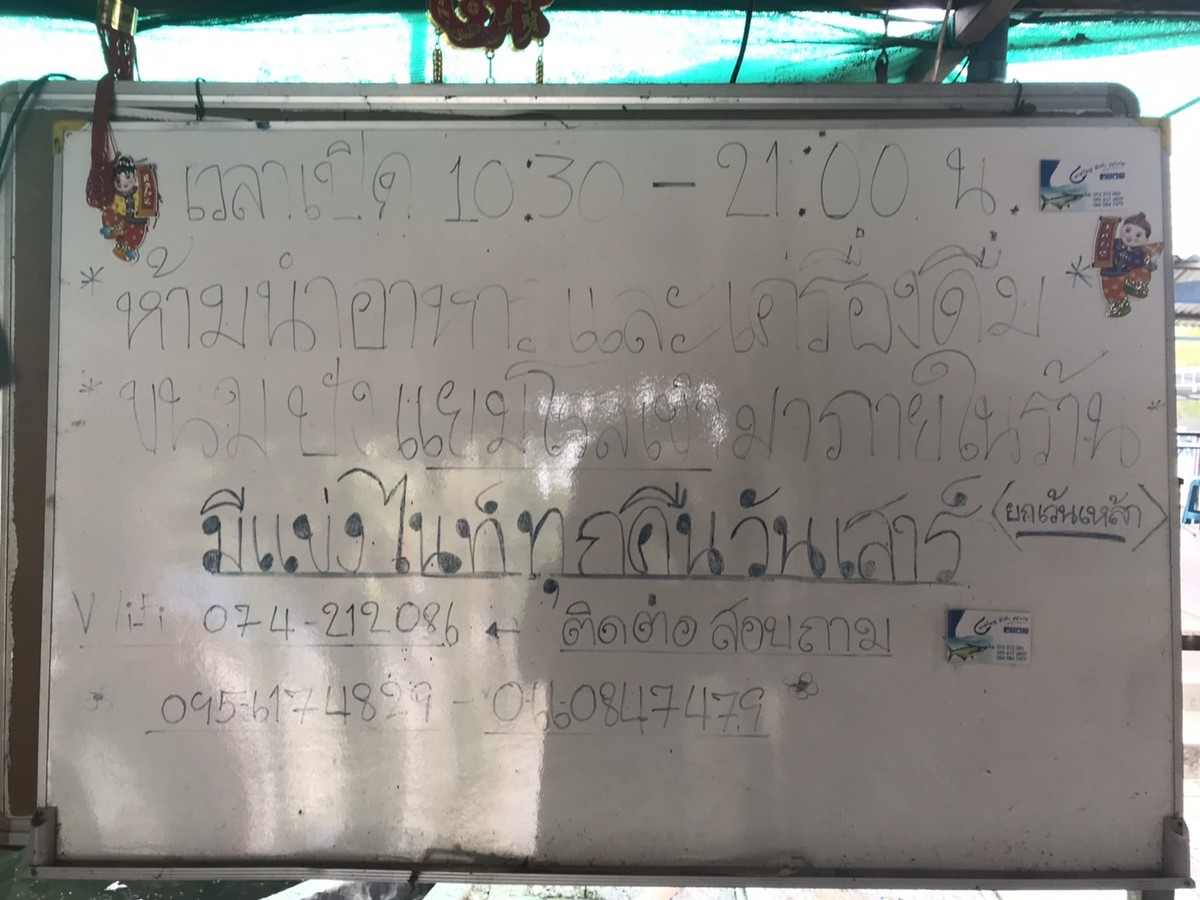 เวลาเปิด 10:30 - 21:00 น.
* ห้ามนำอาหาร และเครื่องดื่ม *
* ขนมปัง แยมโรลเข้ามาภายในร้าน *
มีแบ่งไนท์ทุกคืนวันเสาร์ <ยกเว้นเหล้า>
Wifi 074-212086 ← ติดต่อ สอบถาม
* 095-6174829 - 0660847479 *